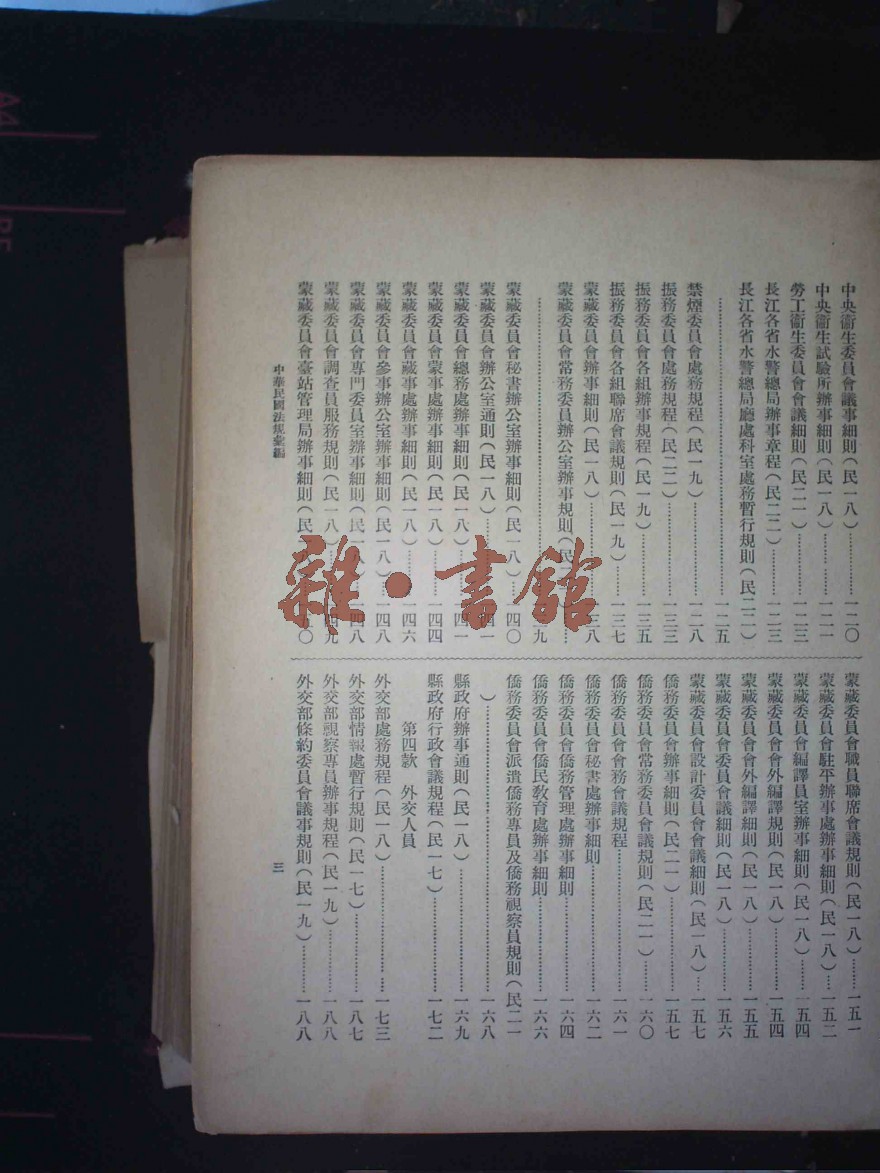 中央衞生委員會議事細則(民一八)…………一二〇
中央衞生試驗所辦事細則(民一八)…………一二一
勞工衞生委員會會議細則(民二一)…………一二三
長江各省水警總局辦事章程(民二二)………一二三
長江各省水警總局廳處科室處務暫行規則(民二二)
…………………………………一二五
禁煙委員會處務規程(民一九)………………一二八
振務委員會處務規程(民二二)………………一三三
振務委員會各組辦事規程(民一九)…………一三五
振務委員會各組聯席會議規則(民一九)……一三七
蒙藏委員會辦事細則(民一八)………………一三八
蒙藏委員會常務委員辦公室辦事規則(民
…………………………………三九
蒙藏委員會秘書辦公室辦事細則(民一八)…一四〇
蒙藏委員會辦公室通則(民一八)……………四一
蒙藏委員會總務處辦事細則(民一八)………四一
蒙藏委員會蒙事處辦事細則(民一八)………一四四
蒙藏委員會藏事處辦事細則(民一八)………一四六
蒙藏委員會參事辦公室辦事細則(民一八)…一四八
蒙藏委員會專門委員室辦事細則(民一八)…一四八
蒙藏委員會調查員服務規則(民一八)………四九
蒙藏委員會臺站管理局辦事細則(民
蒙藏委員會職員聯席會議規則(民一八)……一五一
蒙藏委員會駐平辦事處辦事細則(民一八)…一五二
蒙藏委員會編譯員室辦事細則(民一八)……一五四
蒙藏委員會會外編譯規則(民一八)…………一五四
蒙藏委員會會外編譯細則(民一八)…………一五五
蒙藏委員會委員會議細則(民一八)…………一五六
蒙藏委員會設計委員會會議細則(民一八)…一五七
僑務委員會辦事細則(民二一)………………一五七
僑務委員會常務委員會議規則(民二一)……一六〇
僑務委員會會務會議規程………………………一六一
僑務委員會秘書處辦事細則……………………一六二
僑務委員會僑務管理處辦事細則………………一六四
僑務委員會僑民教育處辦事細則………………一六六
僑務委員會派遣僑務專員及僑務視察員規則(民二一
)………………………………一六八
縣政府辦事通則(民一八)……………………一六九
縣政府行政會議規程(民一七)………………一七二
第四款 外交人員
外交部處務規程(民一八)……………………一七三
外交部情報處暫行規則(民一七)……………一八七
外交部視察專員辦事規程(民一九)…………一八八
外交部條約委員會議事規則(民一九)………一八八
中華民國法規彙編
三
雜·書館